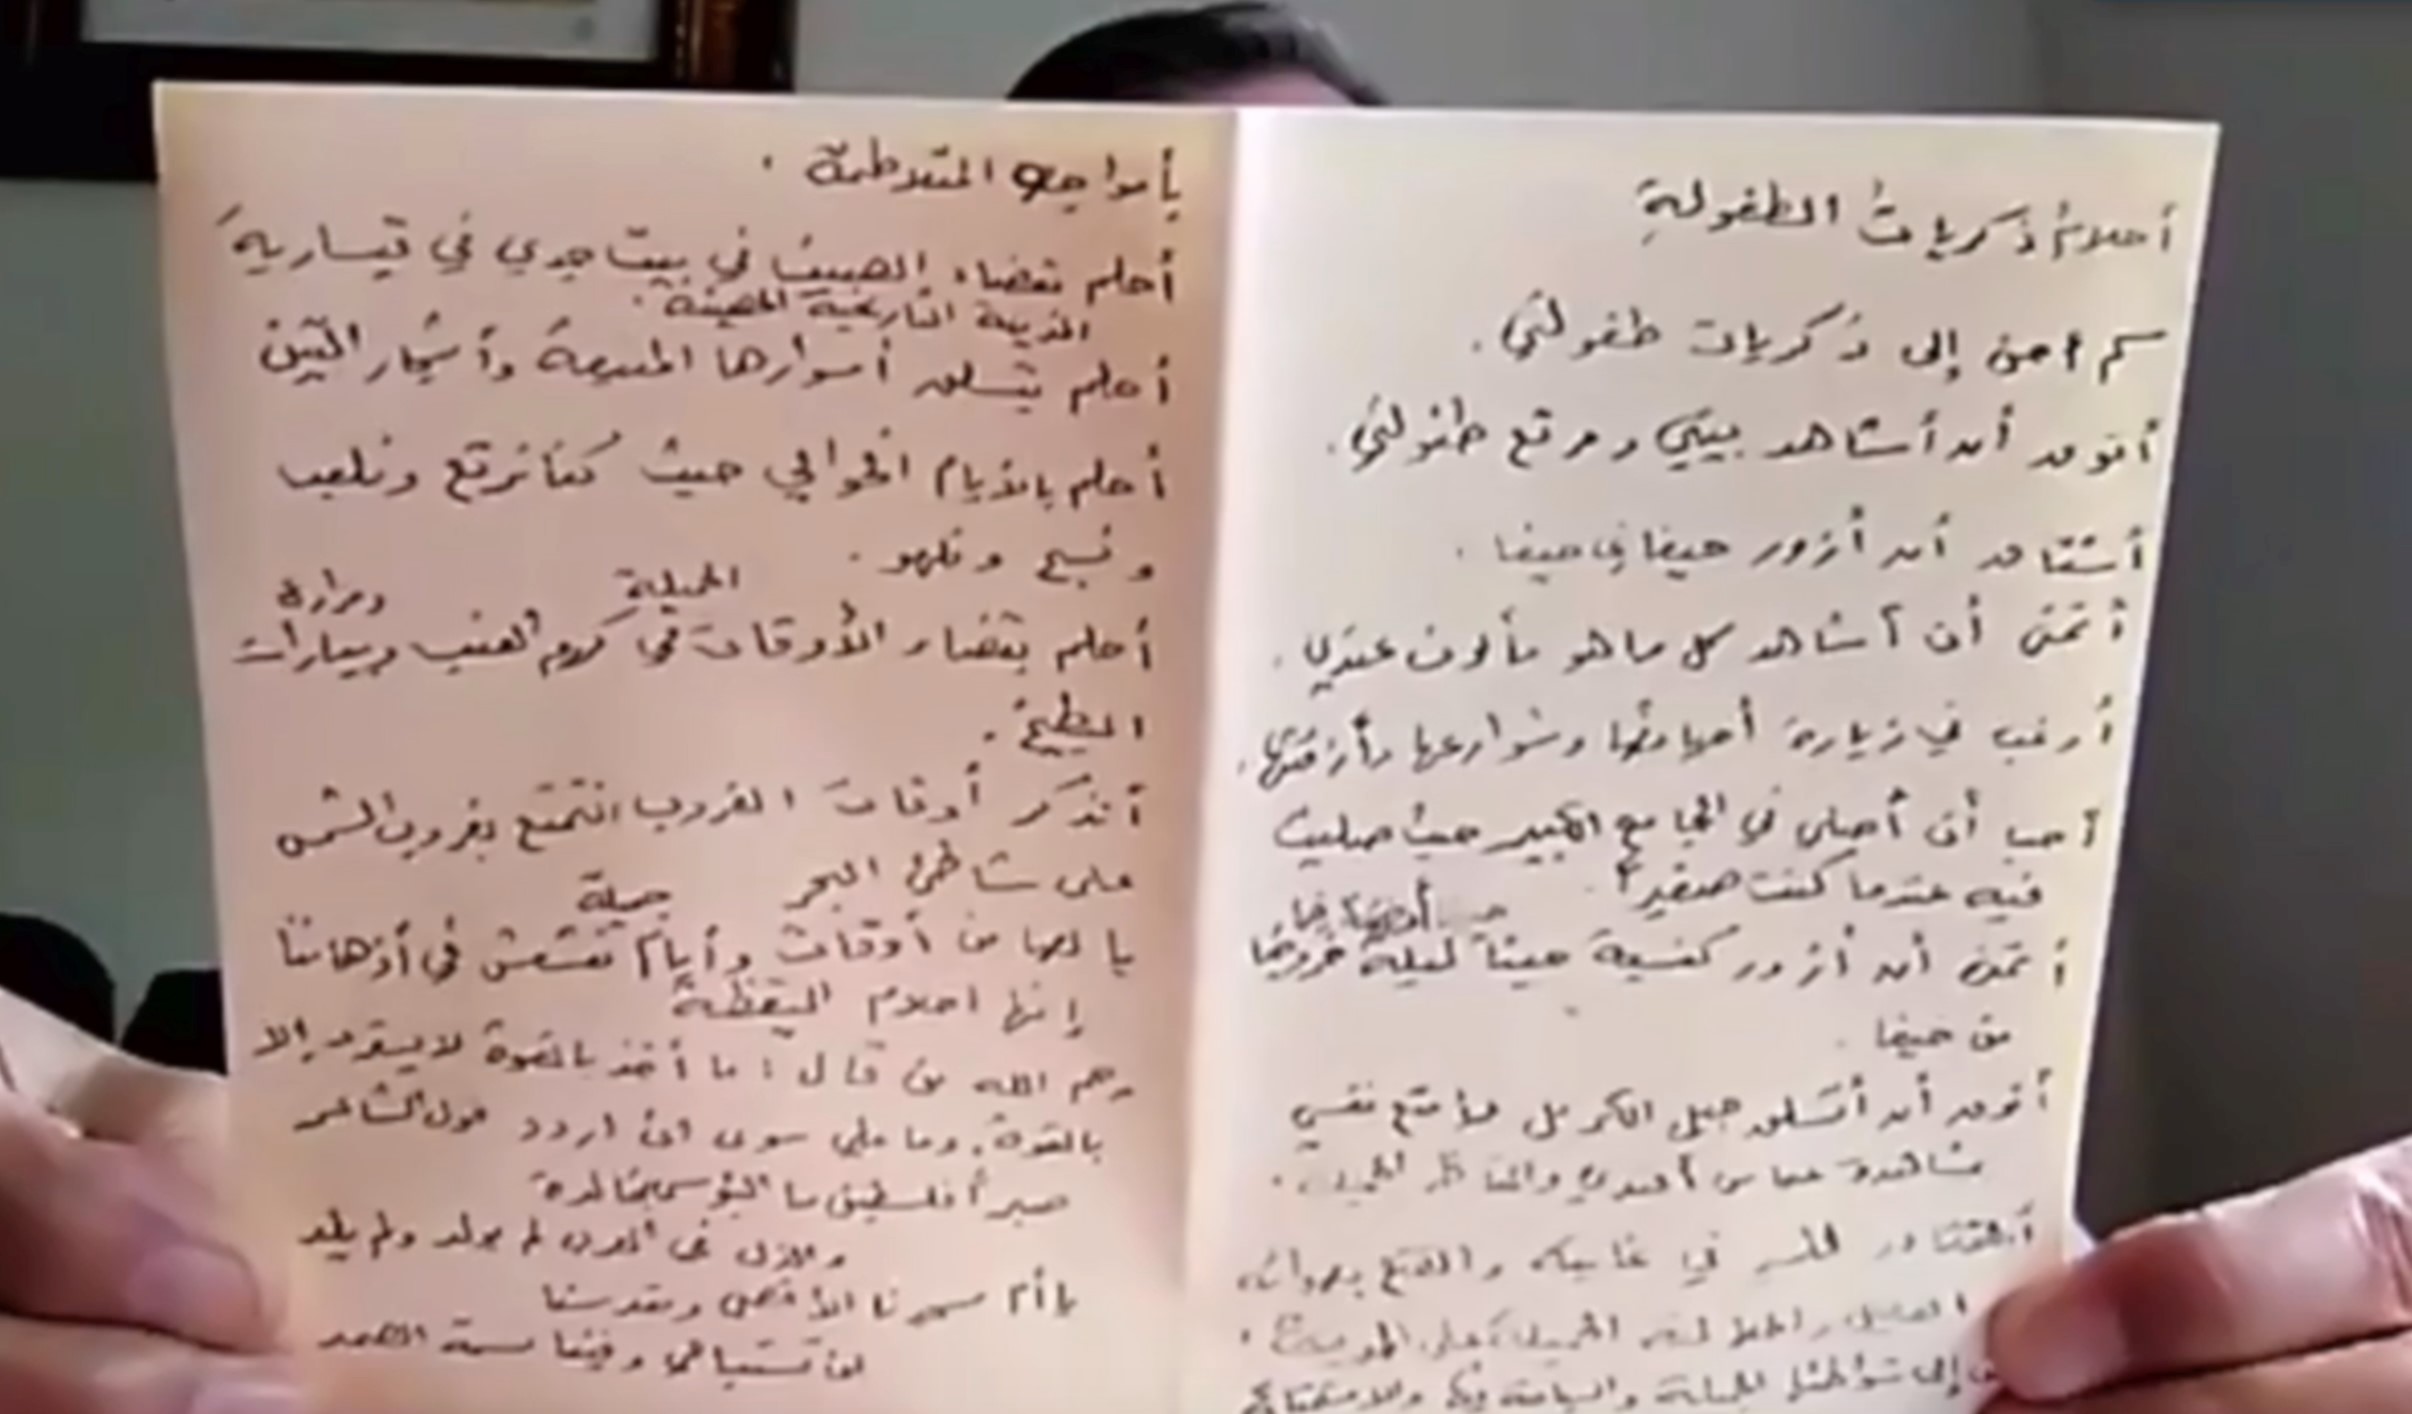 أحلامُ ذكرياتُ الطفولةِ
كم احن إلى ذكريات طفولتي .
أتوق أن أشاهد بيتي ومرتع طفولتي .
أشتاق أن أزور حيفا في حيفا .
أتمنى أن أشاهد كل ما هو مألوف عندي .
أرغب في زيارة أحيائها وشوارعها وأزقتها .
أحب أن أصلي في الجامع الكبير حيث صليت
فيه عندما كنت صغيراً .
أتمنى أن أزور كنيسة حينا ليلة خروجنا
من حيفا .
أتوق أن أتسلق جبل الكرمل فأمتع نفسي
مشاهدة والمناظر الجميلة .
في غابيته والتمتع بهوائه
الجميلة على
إلى شواطئ والسباحة والاستمتاع
بأمواجه المتلاطمة .
أحلم بقضاء الصيف في بيت جدي في قيسارية
التاريخية
أحلم بتسلق أسوارها المنيعة وأشجار التين
أحلم بالأيام الخوالي حيث كنا نرتع ونلعب
ونسبح ونلهو .
الجميلة
أحلم بقضاء الأوقات في كروم العنب وبيارات
البطيخ .
أتذكر أوقات الغروب نتمتع بغروب الشمس
على شاطئ البحر
جميلة
يا لها من أوقات وأيام تعشعش في أذهاننا
إنها احلام اليقظة
رحم الله من قال : ما أخذ بالقوة لا يسترد إلا
بالقوة . وما علي سوى ان اردد قول الشاعر
صبراً فلسطين ما البؤس بخالدة
والذل في العرب لم يولد ولم يلد
يا أم مسرنا الأقصى ومقدسنا
لن تستباحي وفينا نسمة الصمد